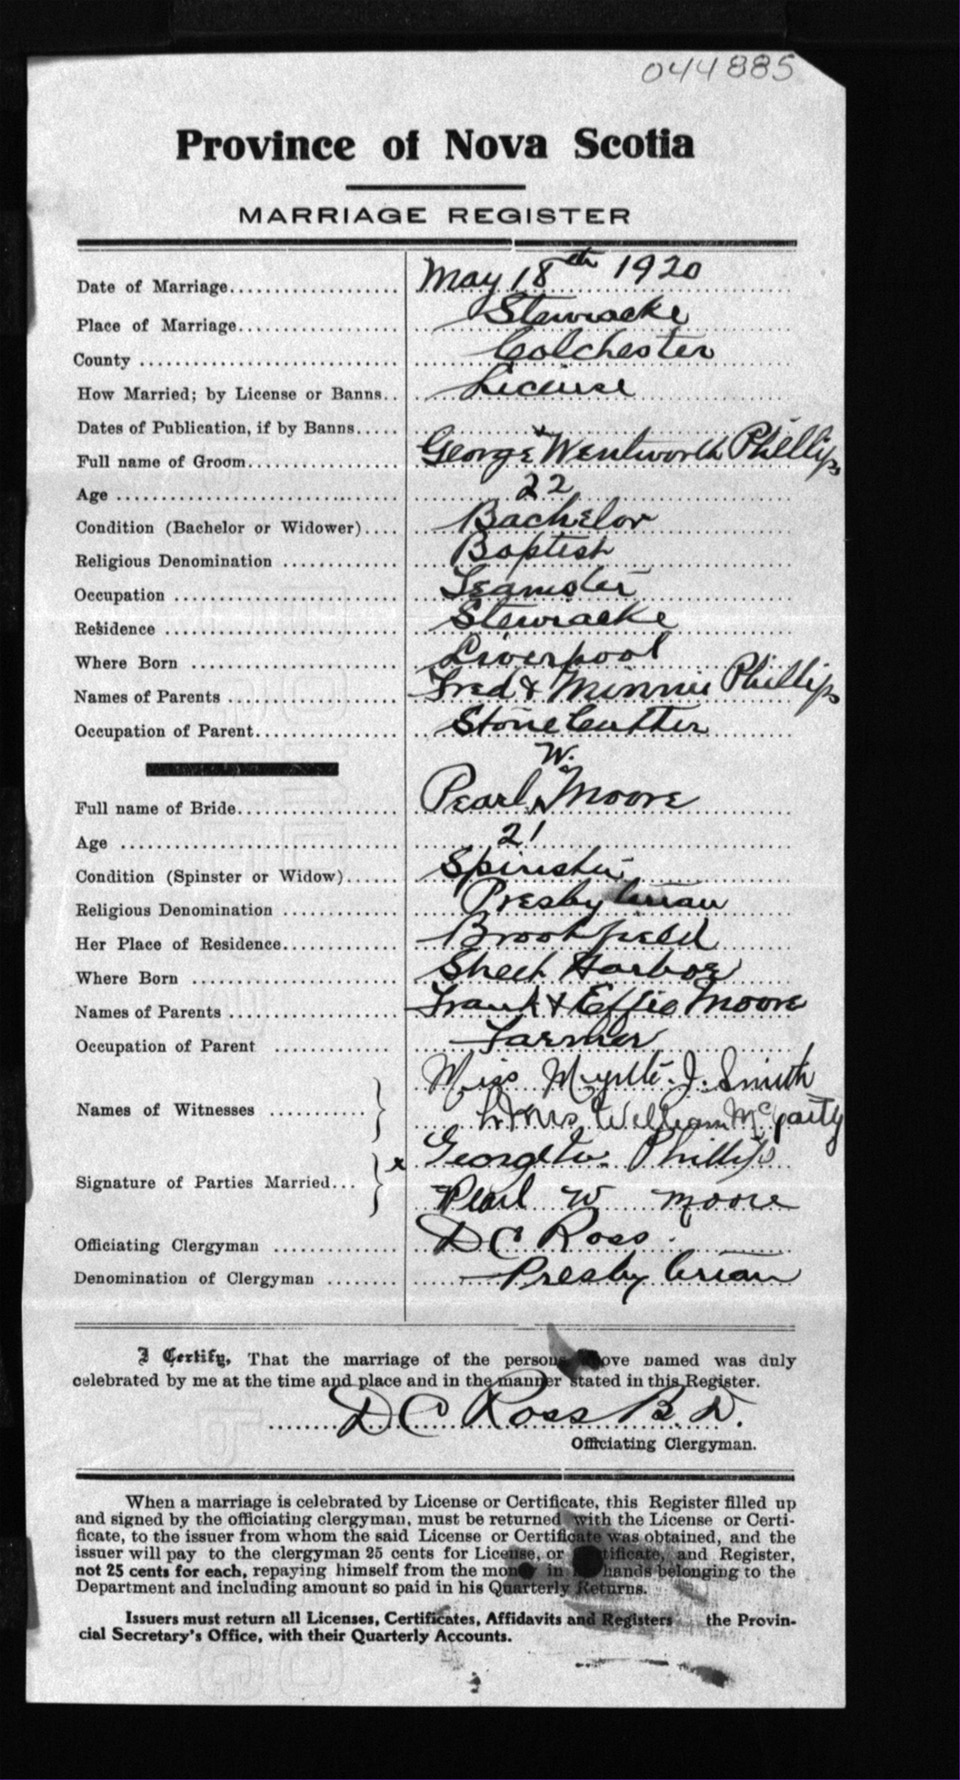 044885
Province of Nova Scotia
MARRIAGE REGISTER
Date of Marriage.................... May 18th 1920
Place of Marriage.................... Stewiacke
County ............................. Colchester
How Married; by License or Banns.. License
Dates of Publication, if by Banns.....
Full name of Groom.................. George Wentworth Phillips
Age ................................ 22
Condition (Bachelor or Widower).... Bachelor
Religious Denomination ............. Baptist
Occupation ......................... Teamster
Residence .......................... Stewiacke
Where Born ........................ Liverpool
Names of Parents ................... Fred & Minnie Phillips
Occupation of Parent................. Stone Cutter
W.
Full name of Bride................... Pearl ^ Moore
Age ................................ 21
Condition (Spinster or Widow)...... Spinster
Religious Denomination ............. Presbyterian
Her Place of Residence.............. Brookfield
Where Born ........................ Sheet Harbor
Names of Parents ................... Frank & Effie Moore
Occupation of Parent .............. Farmer
Miss Myrtle J. Smith
Names of Witnesses ............
Mrs William McGarty
x George W. Phillips
Signature of Parties Married...
Pearl W Moore
Officiating Clergyman .............. D C Ross.
Denomination of Clergyman ........ Presbyterian
I Certify, That the marriage of the persons above named was duly
celebrated by me at the time and place and in the manner stated in this Register.
D C Ross B. D.
Officiating Clergyman.
When a marriage is celebrated by License or Certificate, this Register filled up
and signed by the officiating clergyman, must be returned with the License or Certi-
ficate, to the issuer from whom the said License or Certificate was obtained, and the
issuer will pay to the clergyman 25 cents for License, or Certificate, and Register,
not 25 cents for each, repaying himself from the money in hands belonging to the
Department and including amount so paid in his Quarterly Returns.
Issuers must return all Licenses, Certificates, Affidavits and Registers the Provin-
cial Secretary's Office, with their Quarterly Accounts.